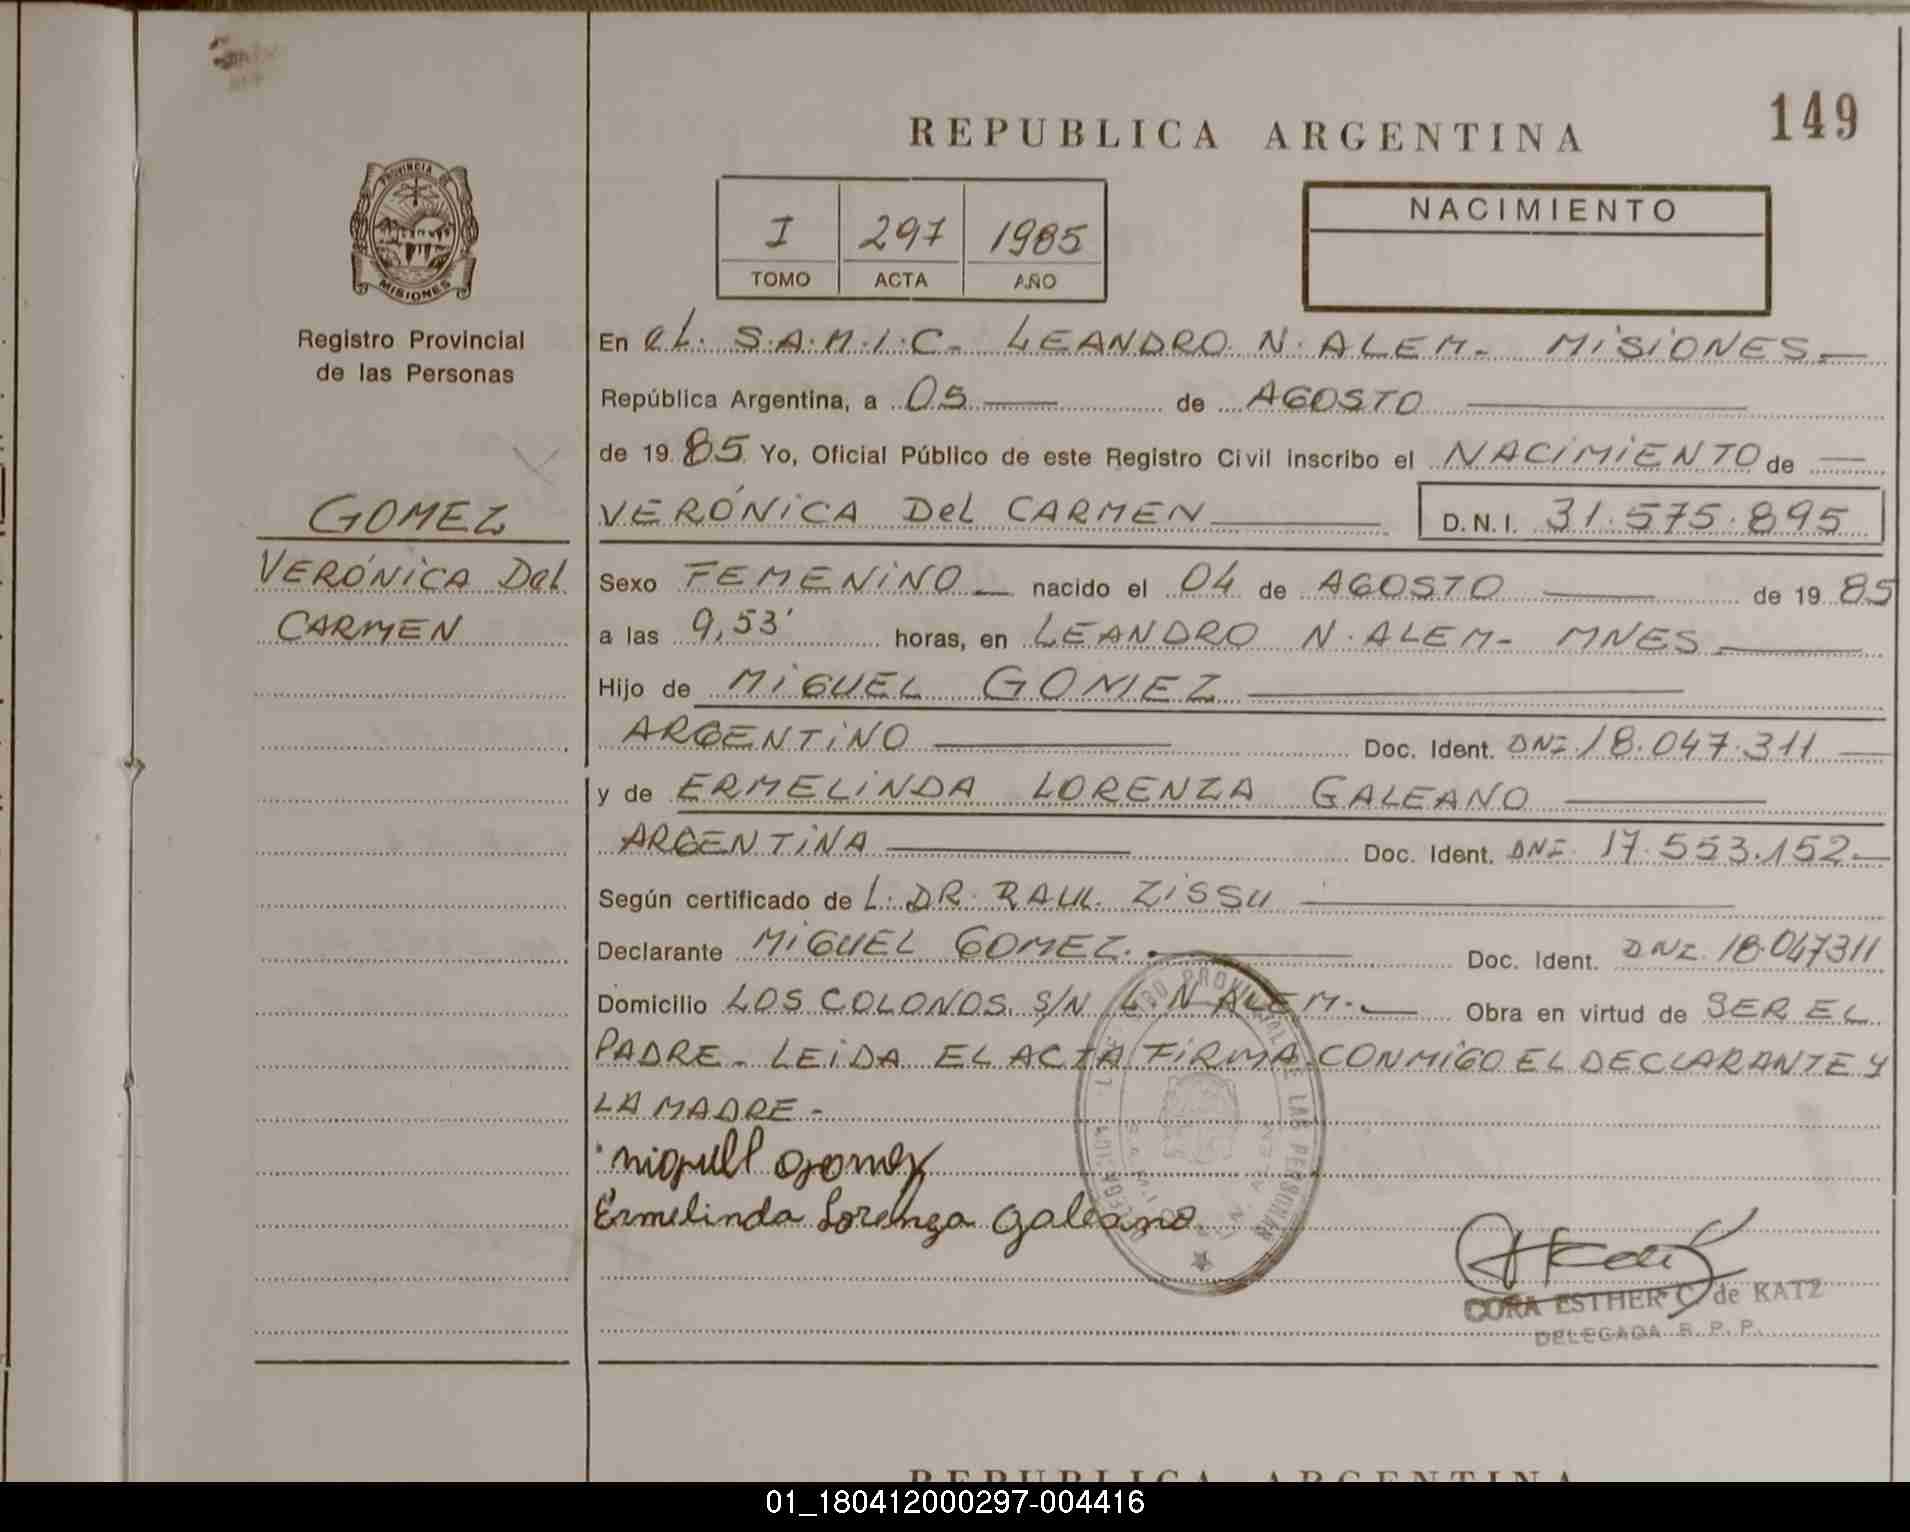 149
REPUBLICA ARGENTINA
PROVINCIA DE
MISIONES
Registro Provincial
de las Personas
I 297 1985
TOMO ACTA AÑO
NACIMIENTO
En eL. S.A.M.I.C- LEANDRO N. ALEM- MISIONES-
República Argentina, a 05 de AGOSTO
de 1985 Yo, Oficial Público de este Registro Civil inscribo el NACIMIENTO de
GOMEZ
VERÓNICA Del CARMEN
VERÓNICA Del CARMEN D.N.I. 31.575.895
Sexo FEMENINO nacido el 04 de AGOSTO de 1985
a las 9,53' horas, en LEANDRO N. ALEM- MNES
Hijo de MIGUEL GOMEZ
ARGENTINO Doc. Ident. DNI. 18.047.311
y de ERMELINDA LORENZA GALEANO
ARGENTINA Doc. Ident. DNI. 17.553.152
Según certificado de L. DR. RAUL ZISSU
Declarante MIGUEL GOMEZ. Doc. Ident. DNI. 18.047311
Domicilio LOS COLONOS S/N L N ALEM.- Obra en virtud de SER EL
PADRE- LEIDA EL ACTA FIRMA CONMIGO EL DECLARANTE Y
LA MADRE-
miguell gomez
Ermelinda Lorenza Galeano
CORA ESTHER C. de KATZ
DELEGADA R.P.P.
REPUBLICA ARGENTINA
01_180412000297-004416